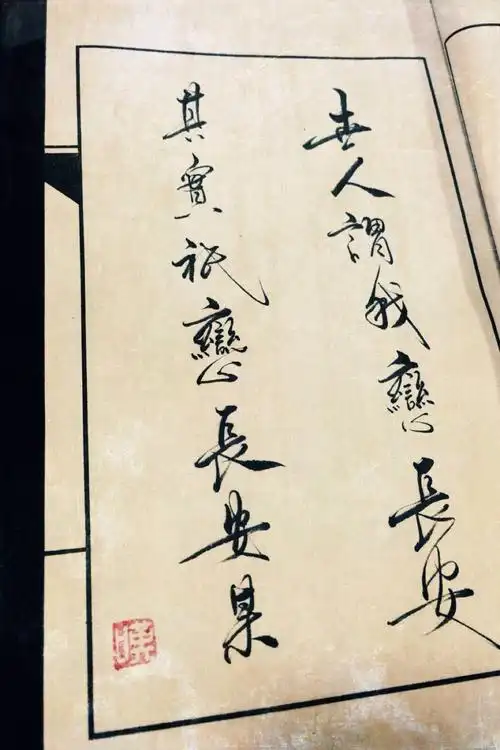 世人謂我戀長安
其實祇戀長安某